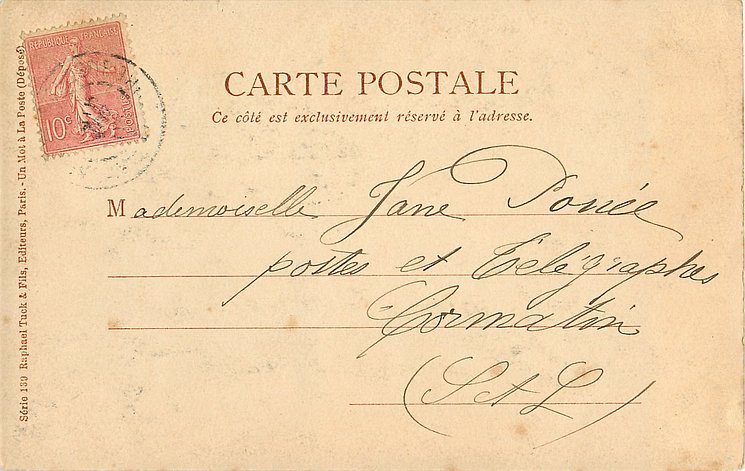 RÉPUBLIQUE FRANÇAISE
10c POSTES
CARTE POSTALE
Ce côté est exclusivement réservé à l'adresse.
Mademoiselle Jane
postes et Télégraphes
Cormatin
(S et L)
Série 139 Raphael Tuck & Fils, Editeurs, Paris. - Un Mot à La Poste (Déposé)